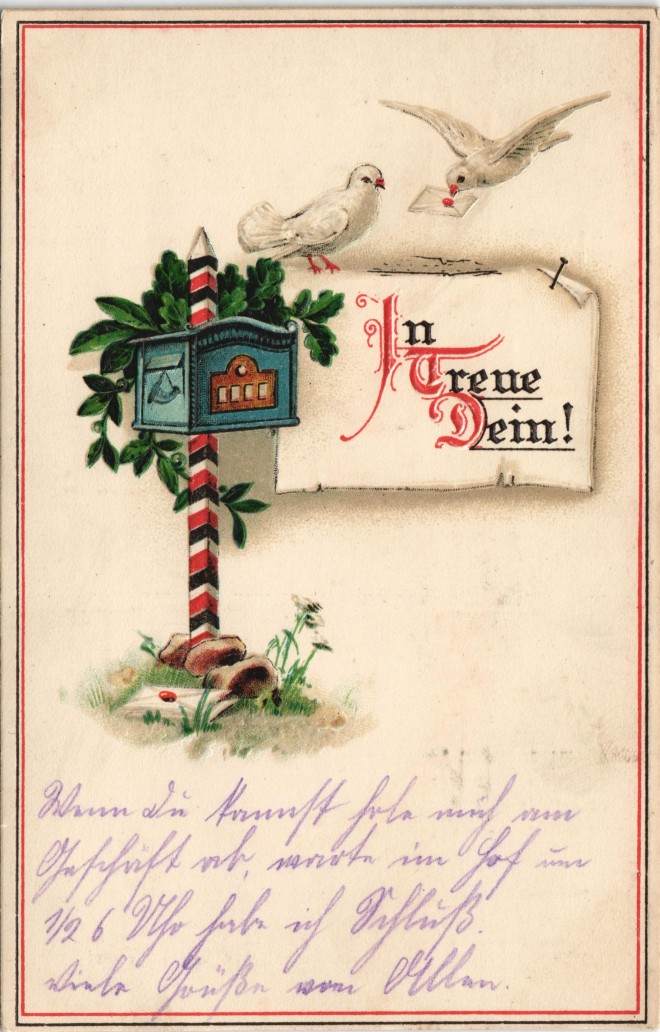 In
Treue
Dein!
Wenn Du kannst hole mich am
Geschäft ab, warte im Hof um
1/2 6 Uhr habe ich Schluß.
Viele Grüße von Allen.